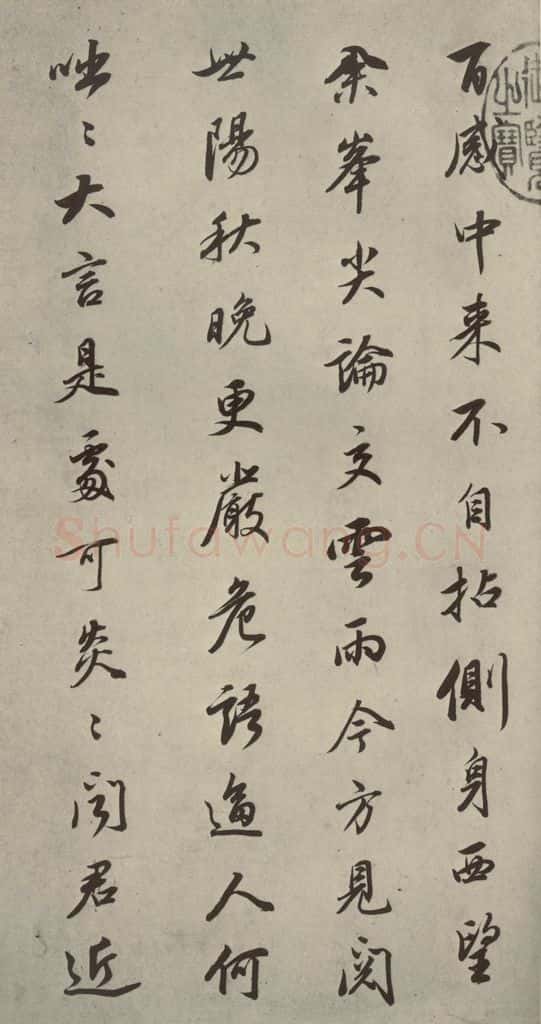 百感中来不自拈側身西望
峯尖論文雲雨今方見閱
世陽秋晚更嚴危語逼人何
咄〻大言是處可炎〻聞君近
御覽之寶
Shufawang.CN